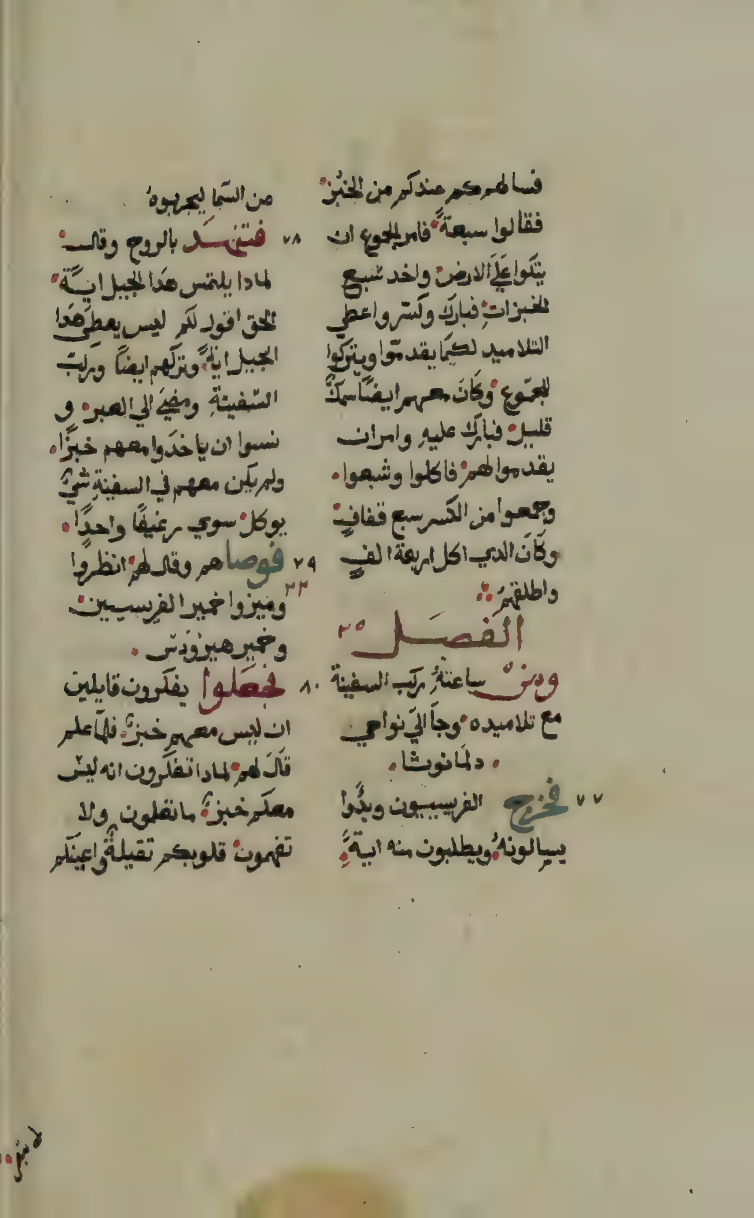 فسالهم كم عندكم من الخبز
فقالوا سبعة فامر الجموع ان
يتكوا على الارض واخد سبع
الخبزات فبارك وكسر واعطى
التلاميد لكيما يقدموا ويتركوا
للجموع وكان معهم ايضًا سمك
قليل فبارك عليه وامران
يقدموا لهم فاكلوا وشبعوا
وجمعوا من الكسر سبع قفاف
وكان الدي اكل اربعة الف
واطلقهم
الفصل ٢٥
ومن ساعته ركب السفينة
مع تلاميده وجا الي نواحي
دلمانوثا
٧٧ فخرج الفريسيون وبدُوا
يسالونه ويطلبون منه اية
من السما ليجربوه
٧٨ فتنهد بالروح وقال
لمادا يلتمس هدا الجيل اية
الحق اقول لكم ليس يعطى هدا
الجيل اية وتركهم ايضًا وركب
السفينة ومضي الي العبر و
نسوا ان ياخدوا معهم خبزًا
ولم يكن معهم في السفينة شي
يوكل سوي رغيفًا واحدًا
٧٩ فوصاهم وقال لهم انظروا
٢٣ وميزوا خمير الفريسيين
وخمير هيرودس
٨٠ فجعلوا يفكرون قايلين
ان ليس معهم خبز فلما علم
قال لهم لمادا تفكرون انه ليس
معكم خبز ما تعلمون ولا
تفهمون قلوبكم تقيلة واعينكم